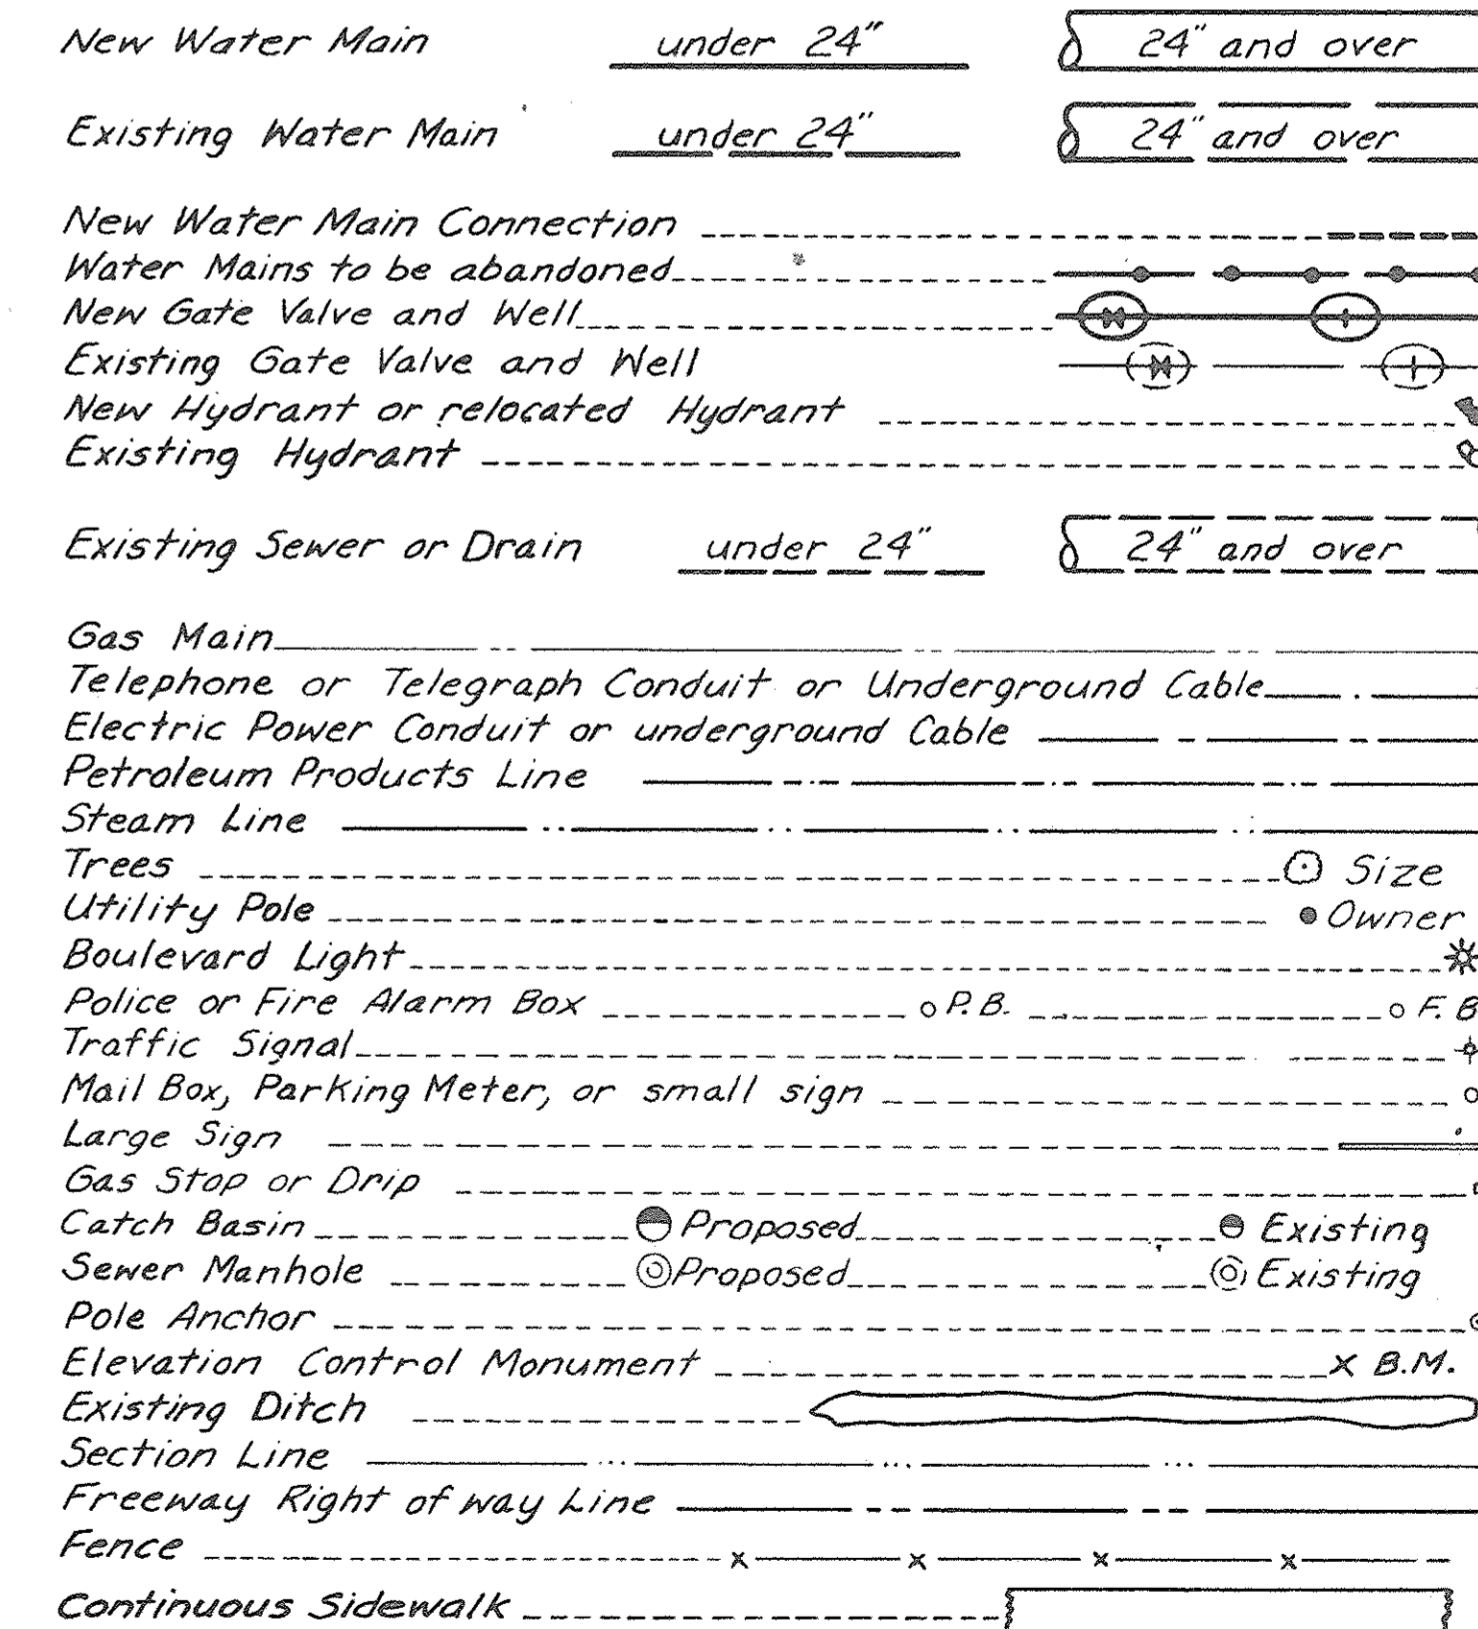 New Water Main under 24" 24" and over
Existing Water Main under 24" 24" and over
New Water Main Connection
Water Mains to be abandoned
New Gate Valve and Well
Existing Gate Valve and Well
New Hydrant or relocated Hydrant
Existing Hydrant
Existing Sewer or Drain under 24" 24" and over
Gas Main
Telephone or Telegraph Conduit or Underground Cable
Electric Power Conduit or underground Cable
Petroleum Products Line
Steam Line
Trees Size
Utility Pole Owner
Boulevard Light
Police or Fire Alarm Box P.B. F.B
Traffic Signal
Mail Box, Parking Meter, or small sign
Large Sign
Gas Stop or Drip
Catch Basin Proposed Existing
Sewer Manhole Proposed Existing
Pole Anchor
Elevation Control Monument X B.M.
Existing Ditch
Section Line
Freeway Right of way Line
Fence
Continuous Sidewalk